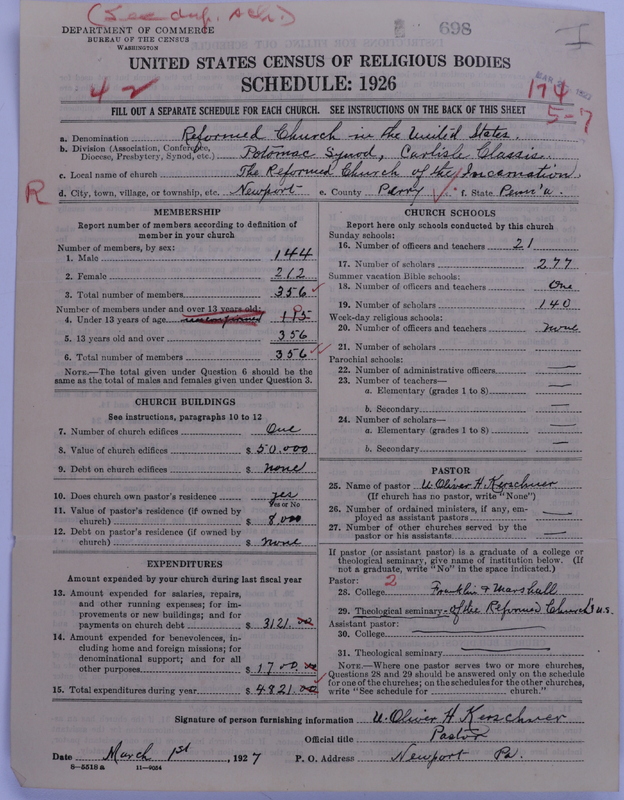 (See dup. sch.)
DEPARTMENT OF COMMERCE
BUREAU OF THE CENSUS
WASHINGTON
698
I
UNITED STATES CENSUS OF RELIGIOUS BODIES
SCHEDULE: 1926
42
174
5-7
FILL OUT A SEPARATE SCHEDULE FOR EACH CHURCH. SEE INSTRUCTIONS ON THE BACK OF THIS SHEET
a. Denomination Reformed Church in the United States.
b. Division (Association, Conference, Diocese, Presbytery, Synod, etc.) Potomac Synod, Carlisle Classis.
c. Local name of church The Reformed Church of the Incarnation
R
d. City, town, village, or township, etc. Newport e. County Perry f. State Penn'a.
MEMBERSHIP
Report number of members according to definition of
member in your church
Number of members, by sex:
1. Male 144
2. Female 212
3. Total number of members 356
Number of members under and over 13 years old:
4. Under 13 years of age
5. 13 years old and over 356
6. Total number of members 356
NOTE.—The total given under Question 6 should be the
same as the total of males and females given under Question 3.
CHURCH BUILDINGS
See instructions, paragraphs 10 to 12
7. Number of church edifices One
8. Value of church edifices $ 50.000
9. Debt on church edifices $ none
10. Does church own pastor's residence yes
Yes or No
11. Value of pastor's residence (if owned by
church) $ 8.000
12. Debt on pastor's residence (if owned by
church) $ none
EXPENDITURES
Amount expended by your church during last fiscal year
13. Amount expended for salaries, repairs,
and other running expenses; for im-
provements or new buildings; and for
payments on church debt $ 3121.00
14. Amount expended for benevolences, in-
cluding home and foreign missions; for
denominational support; and for all
other purposes $ 1700.00
15. Total expenditures during year $ 4821.00
CHURCH SCHOOLS
Report here only schools conducted by this church
Sunday schools:
16. Number of officers and teachers 21
17. Number of scholars 277
Summer vacation Bible schools:
18. Number of officers and teachers One
19. Number of scholars 140
Week-day religious schools:
20. Number of officers and teachers none
21. Number of scholars —
Parochial schools:
22. Number of administrative officers —
23. Number of teachers—
a. Elementary (grades 1 to 8) —
b. Secondary —
24. Number of scholars—
a. Elementary (grades 1 to 8) —
b. Secondary —
PASTOR
25. Name of pastor U. Oliver H. Kerschner
(If church has no pastor, write "None")
26. Number of ordained ministers, if any, em-
ployed as assistant pastors —
27. Number of other churches served by the
pastor or his assistants —
If pastor (or assistant pastor) is a graduate of a college or
theological seminary, give name of institution below. (If
not a graduate, write "No" in the space indicated.)
Pastor: 2
28. College Franklin & Marshall
29. Theological seminary of the Reformed Church U.S.
Assistant pastor:
30. College
31. Theological seminary
NOTE.—Where one pastor serves two or more churches,
Questions 28 and 29 should be answered only on the schedule
for one of the churches; on the schedules for the other churches,
write "See schedule for ____ church."
Signature of person furnishing information U. Oliver H Kerschner
Official title Pastor
Date March 1st, 1927 P. O. Address Newport Pa.
8—5518 a 11—9054